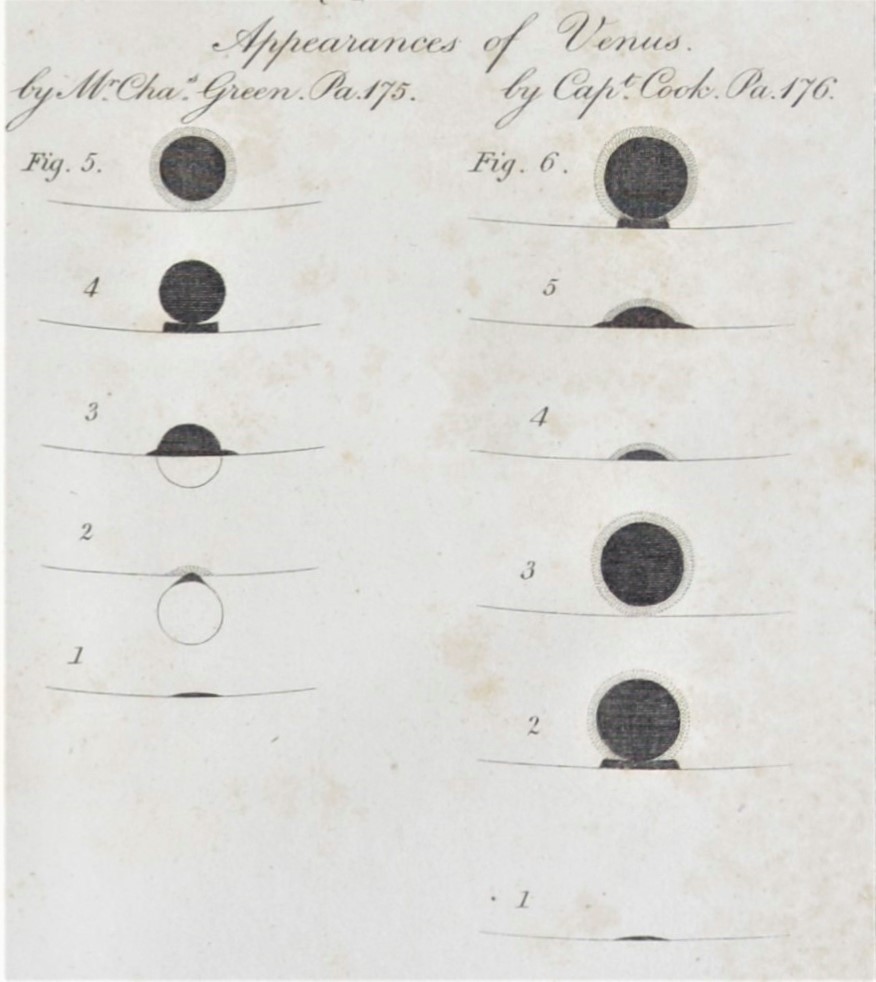 Appearances of Venus.
by Mr. Chas. Green. Pa. 175.
by Capt. Cook. Pa. 176.
Fig. 5.
4
3
2
1
Fig. 6.
5
4
3
2
1